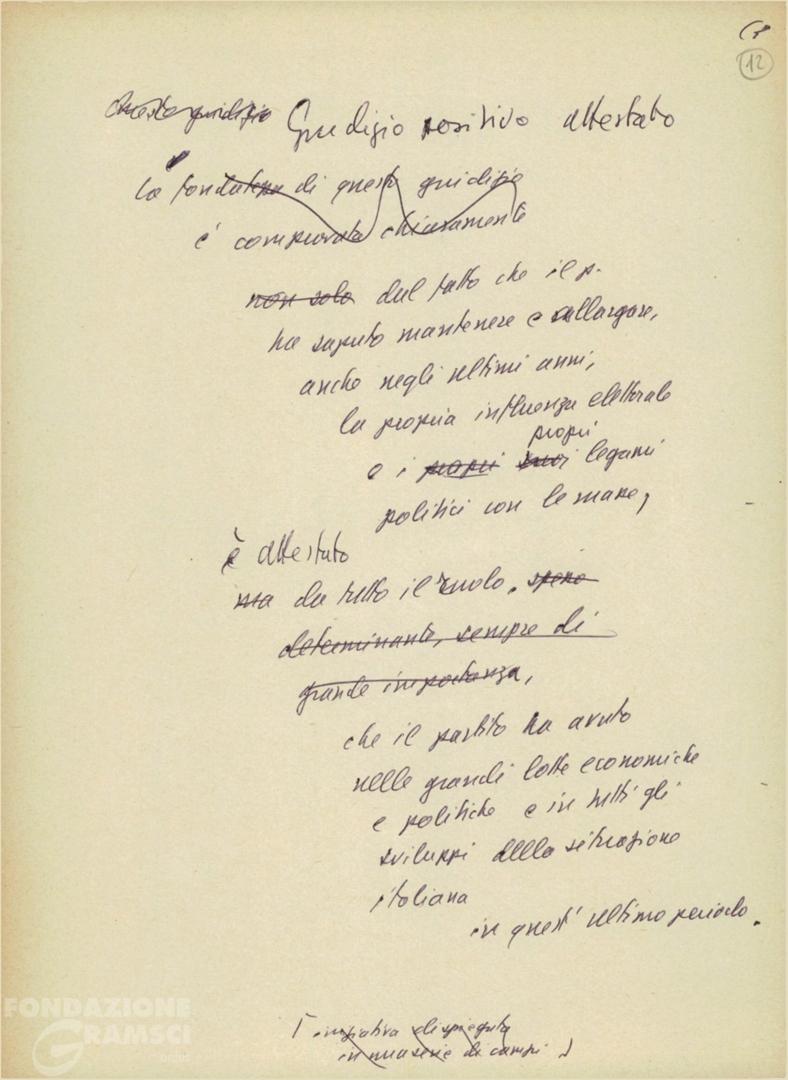 12
Questo giudizio Giudizio positivo attestato
La fondatezza di questo giudizio
è comprovata chiaramente
non solo dal fatto che il p.
ha saputo mantenere e allargare,
anche negli ultimi anni,
la propria influenza elettorale
propri
e i propri suoi legami
politici con le masse,
è attestato
ma da tutto il ruolo, spesso
determinante, sempre di
grande importanza,
che il partito ha avuto
nelle grandi lotte economiche
e politiche e in tutti gli
sviluppi della situazione
italiana
in quest'ultimo periodo.
[iniziativa dispiegata
in una serie di campi]
FONDAZIONE
GRAMSCI
onlus